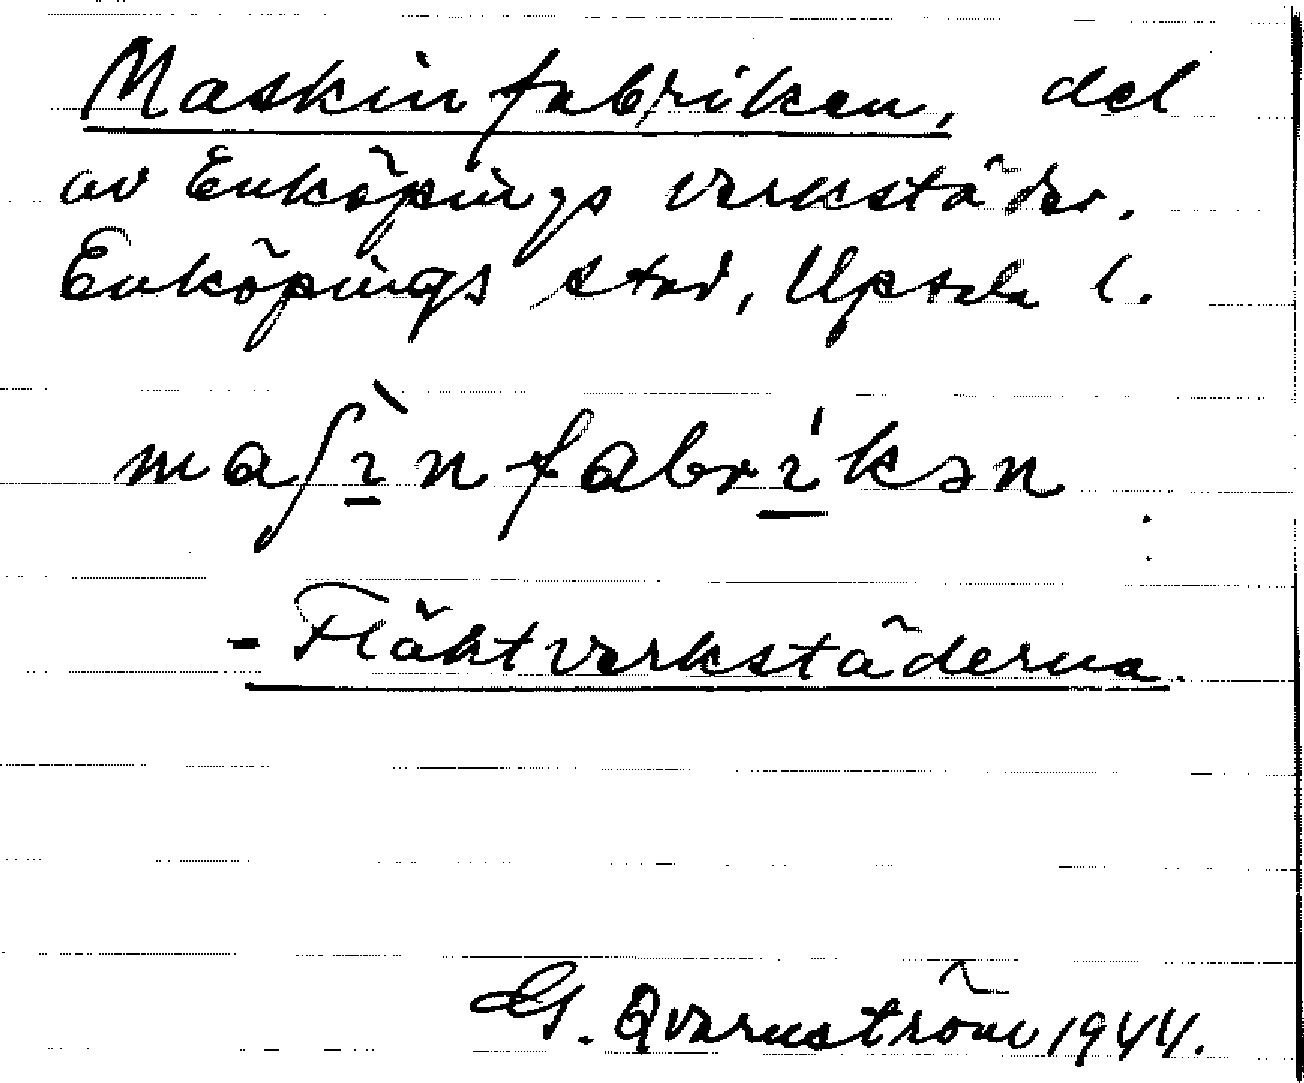 Maskinfabriken, del
av Enköpings verkstäder.
Enköpings stad, Upsala l.
maʃìnfabríkən
- Fläktverkstäderna.
G. Qvarnström 1944.